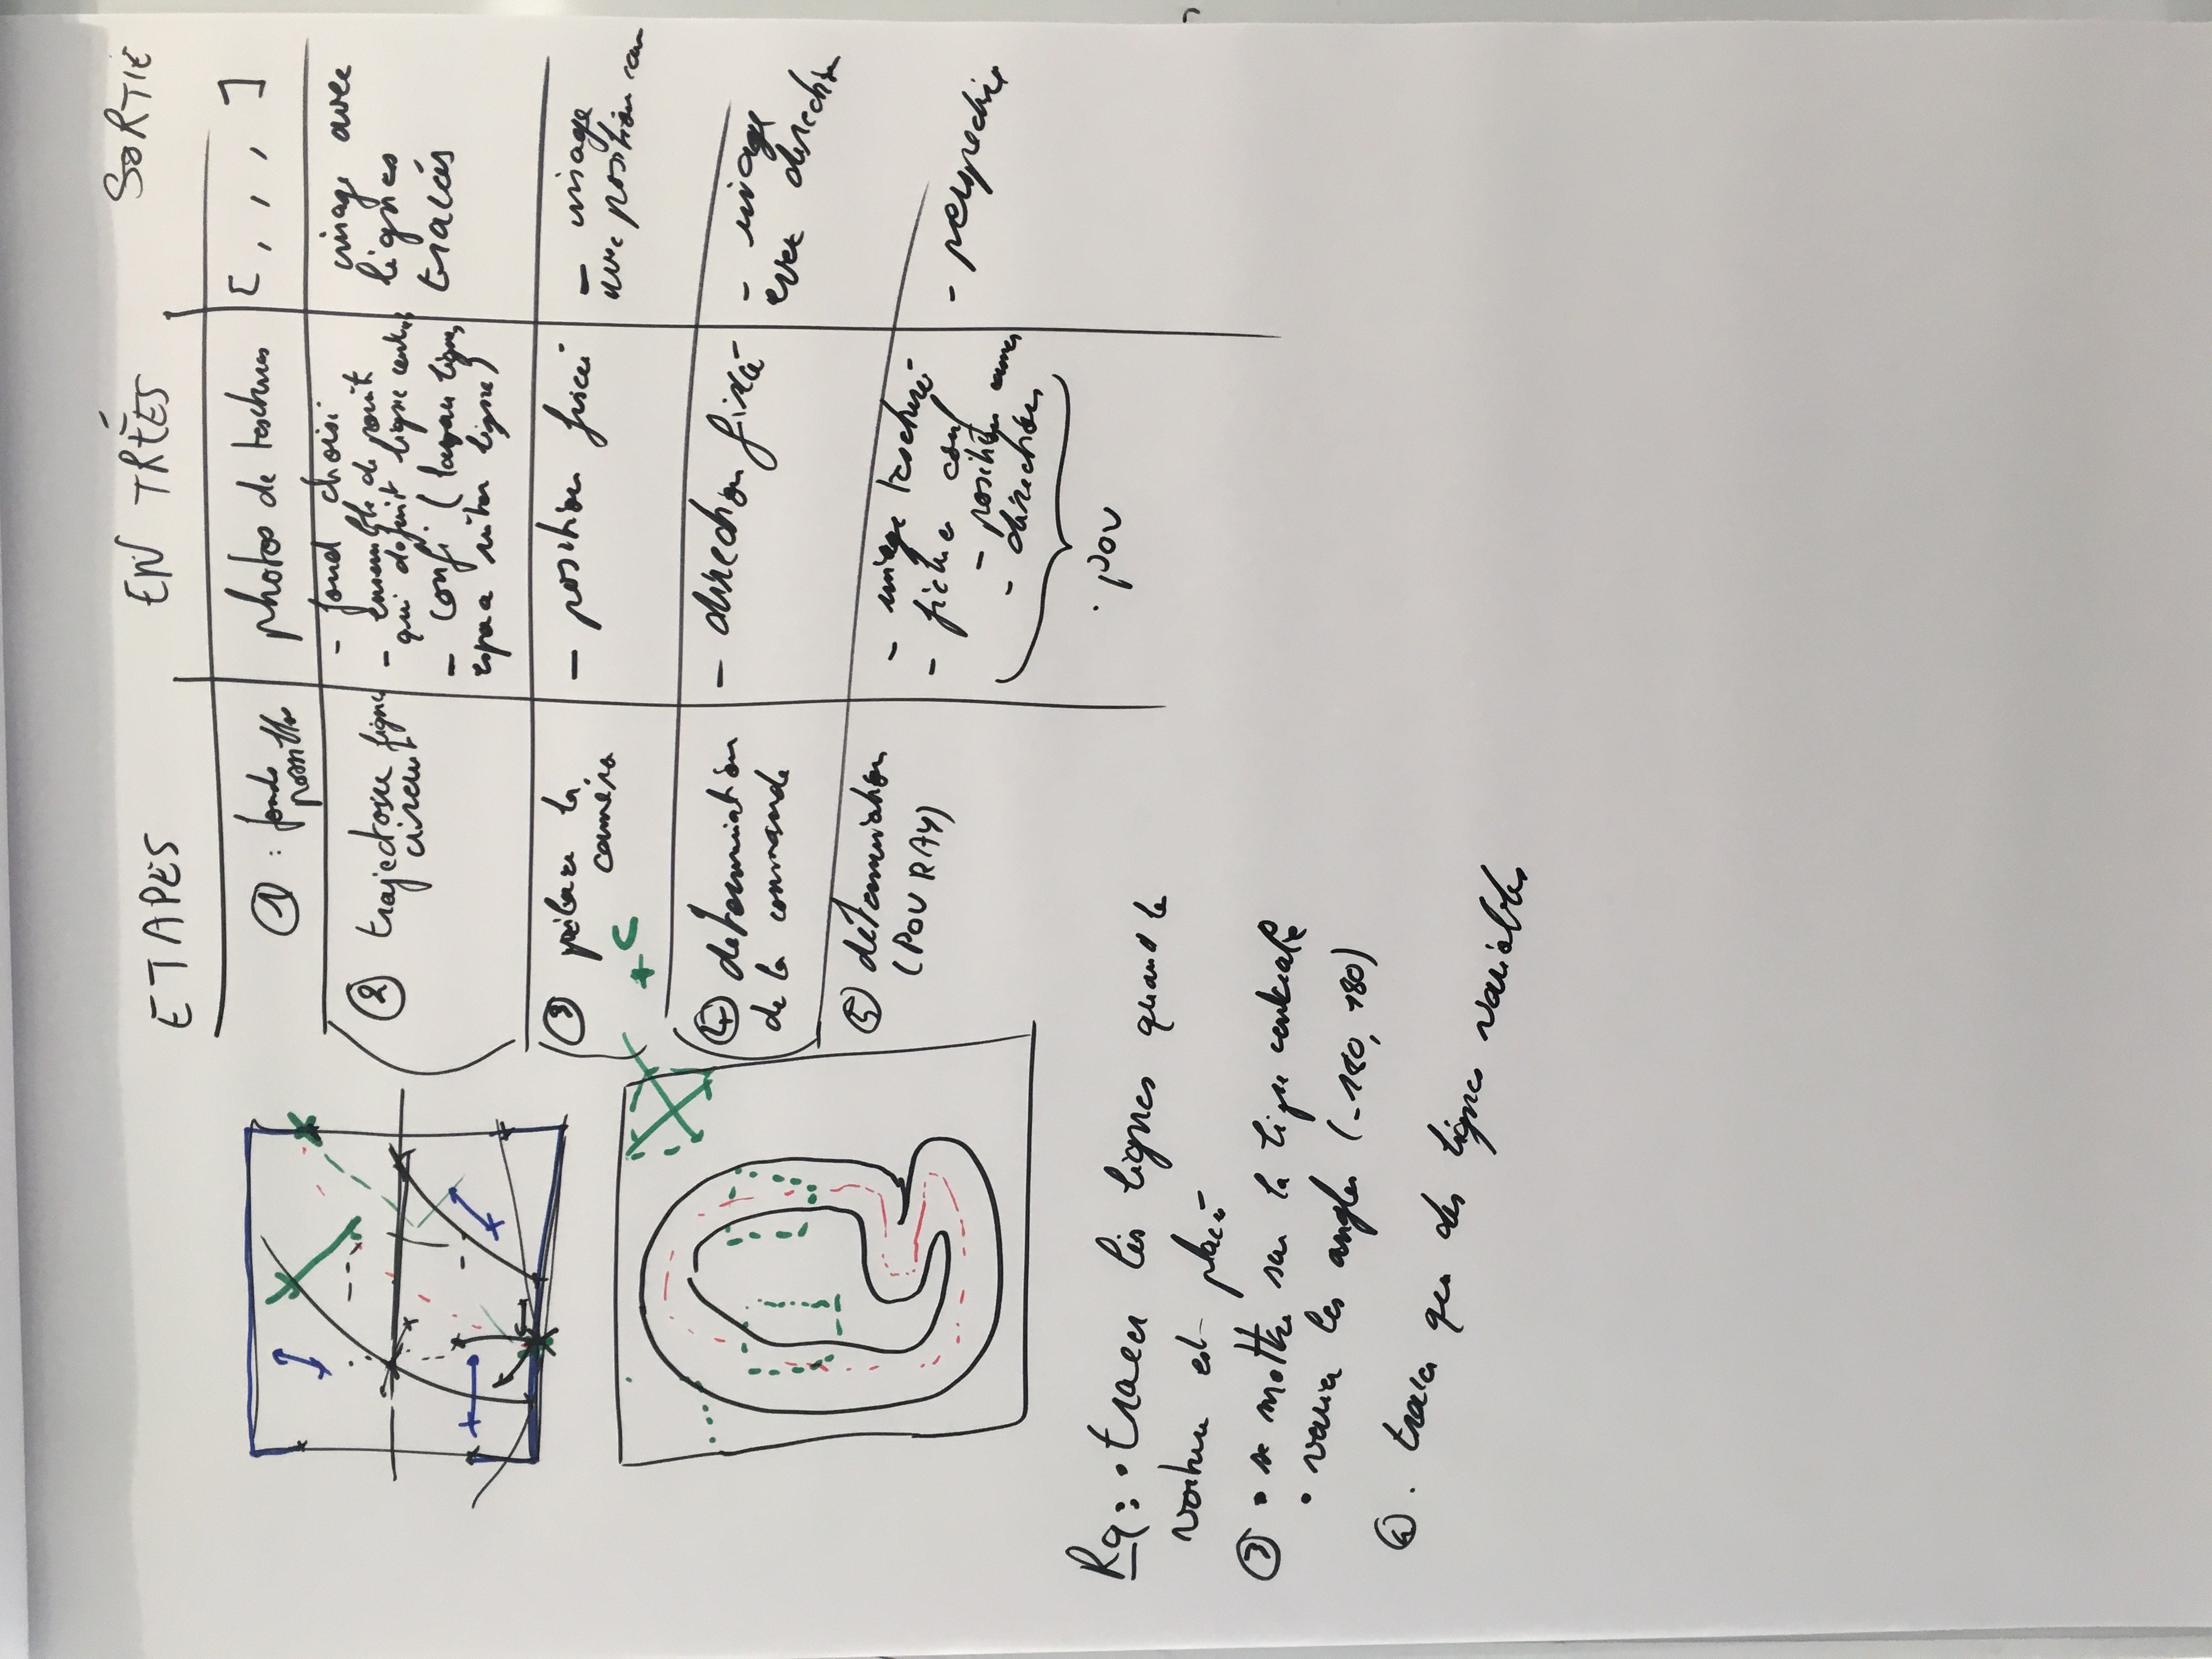 ETAPES
EN TRÉES
SORTIE
① : fonds
possibles
photos de textures
[ , , , ]
② trajectoire ligne
circuit
- fond choisi
- ensemble de point
qui definit ligne central
- confi ( ligne,
espace ligne)
image avec
lignes
tracés
③ la
caméra
- position fixée
- image
avec position cam
+ C
④ determination
de la commande
- direction fixée
- image
avec direction
⑤ determination
(POV RAY)
- image texturé
- fichier conf
- position camera
- direction
. pov
- perspective
Rq : • tracer les lignes quand la
voiture est placé
③ • se mettre sur la ligne centrale
• varier les angles (-180, 180)
. tracer que des lignes variables